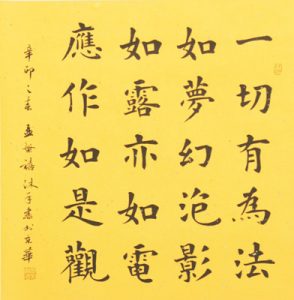 一切有為法
如夢幻泡影
如露亦如電
應作如是觀
辛卯之春
沐手書於京華